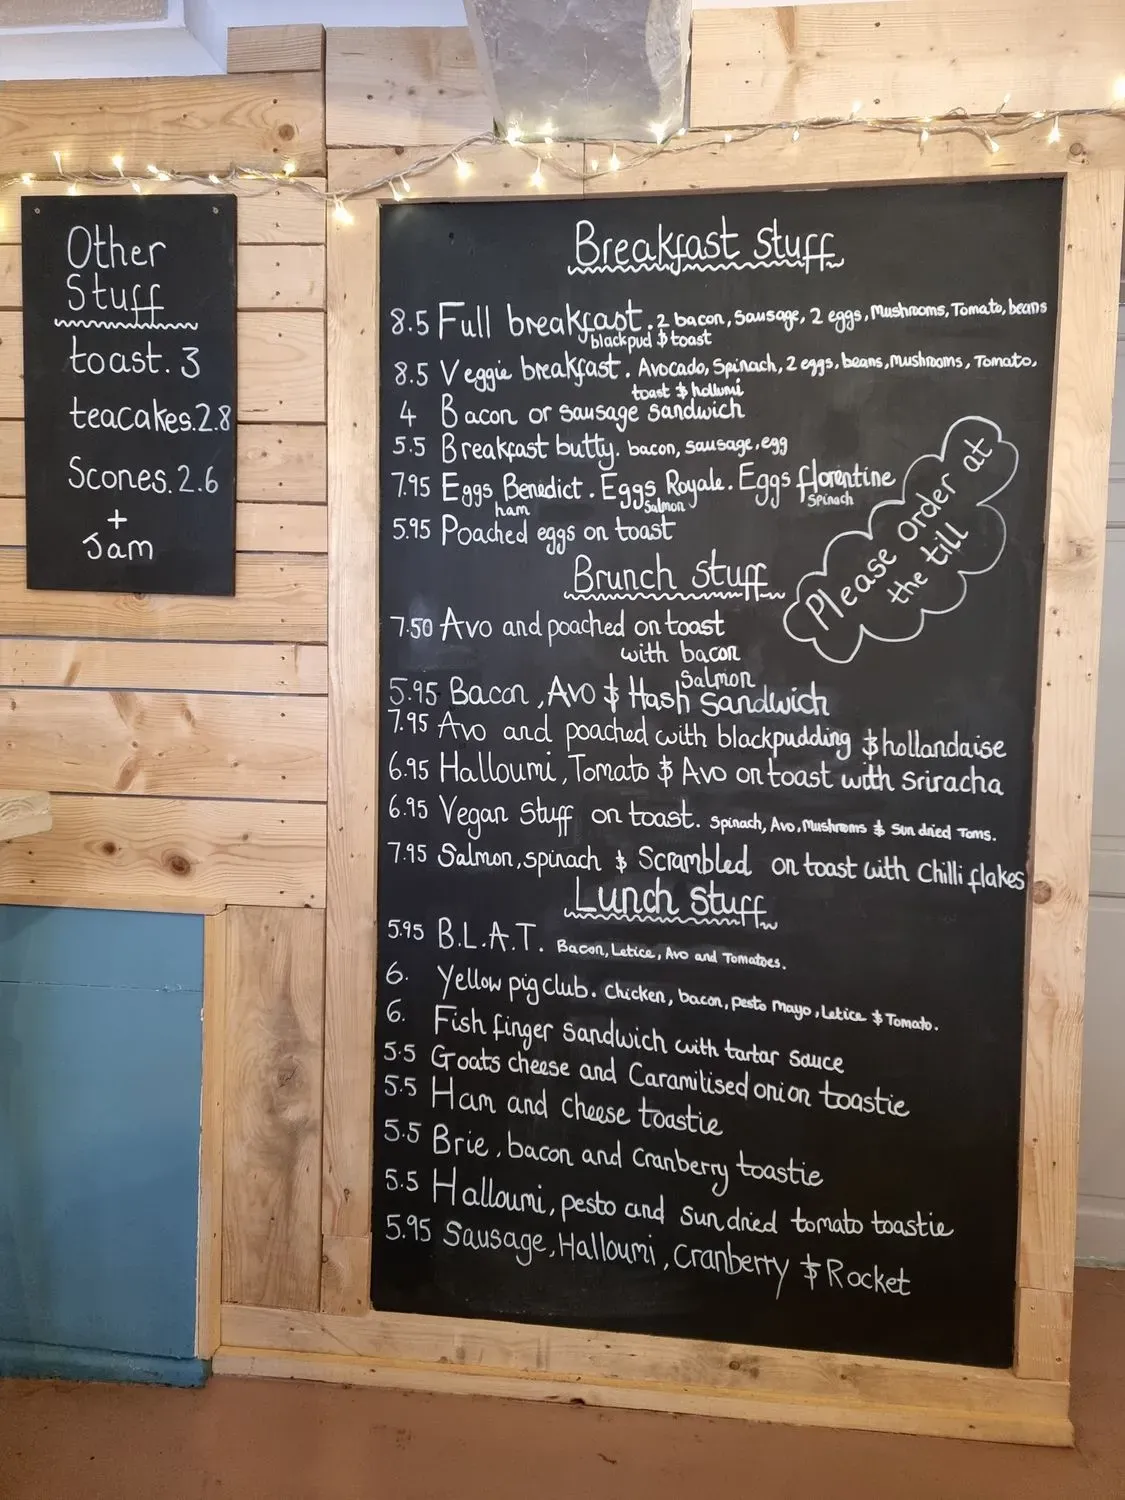 Other
Stuff
toast. 3
teacakes. 2.8
Scones. 2.6
+
Jam
Breakfast stuff
8.5 Full breakfast. 2 bacon, sausage, 2 eggs, Mushrooms, Tomato, beans
blackpud & toast
8.5 Veggie breakfast. Avocado, Spinach, 2 eggs, beans, Mushrooms, Tomato,
toast & hollumi
4 Bacon or sausage sandwich
5.5 Breakfast butty. bacon, sausage, egg
7.95 Eggs Benedict. Eggs Royale. Eggs florentine
ham Salmon Spinach
5.95 Poached eggs on toast
Please order at
the till
Brunch stuff
7.50 Avo and poached on toast
with bacon
Salmon
5.95 Bacon, Avo & Hash sandwich
7.95 Avo and poached with blackpudding & hollandaise
6.95 Halloumi, Tomato & Avo on toast with sriracha
6.95 Vegan Stuff on toast. Spinach, Avo, Mushrooms & Sun dried Toms.
7.95 Salmon, spinach & Scrambled on toast with Chilli flakes
Lunch stuff
5.95 B.L.A.T. Bacon, Letice, Avo and Tomatoes.
6. Yellow pig club. Chicken, bacon, pesto mayo, Letice & Tomato.
6. Fish finger sandwich with tartar sauce
5.5 Goats cheese and Caramilised onion toastie
5.5 Ham and cheese toastie
5.5 Brie, bacon and Cranberry toastie
5.5 Halloumi, pesto and sundried tomato toastie
5.95 Sausage, Halloumi, Cranberry & Rocket